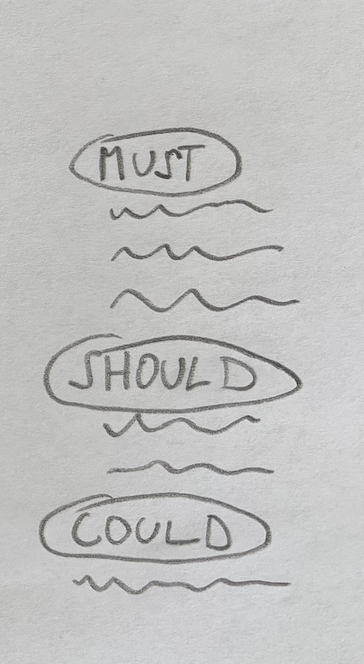 MUST
SHOULD
COULD